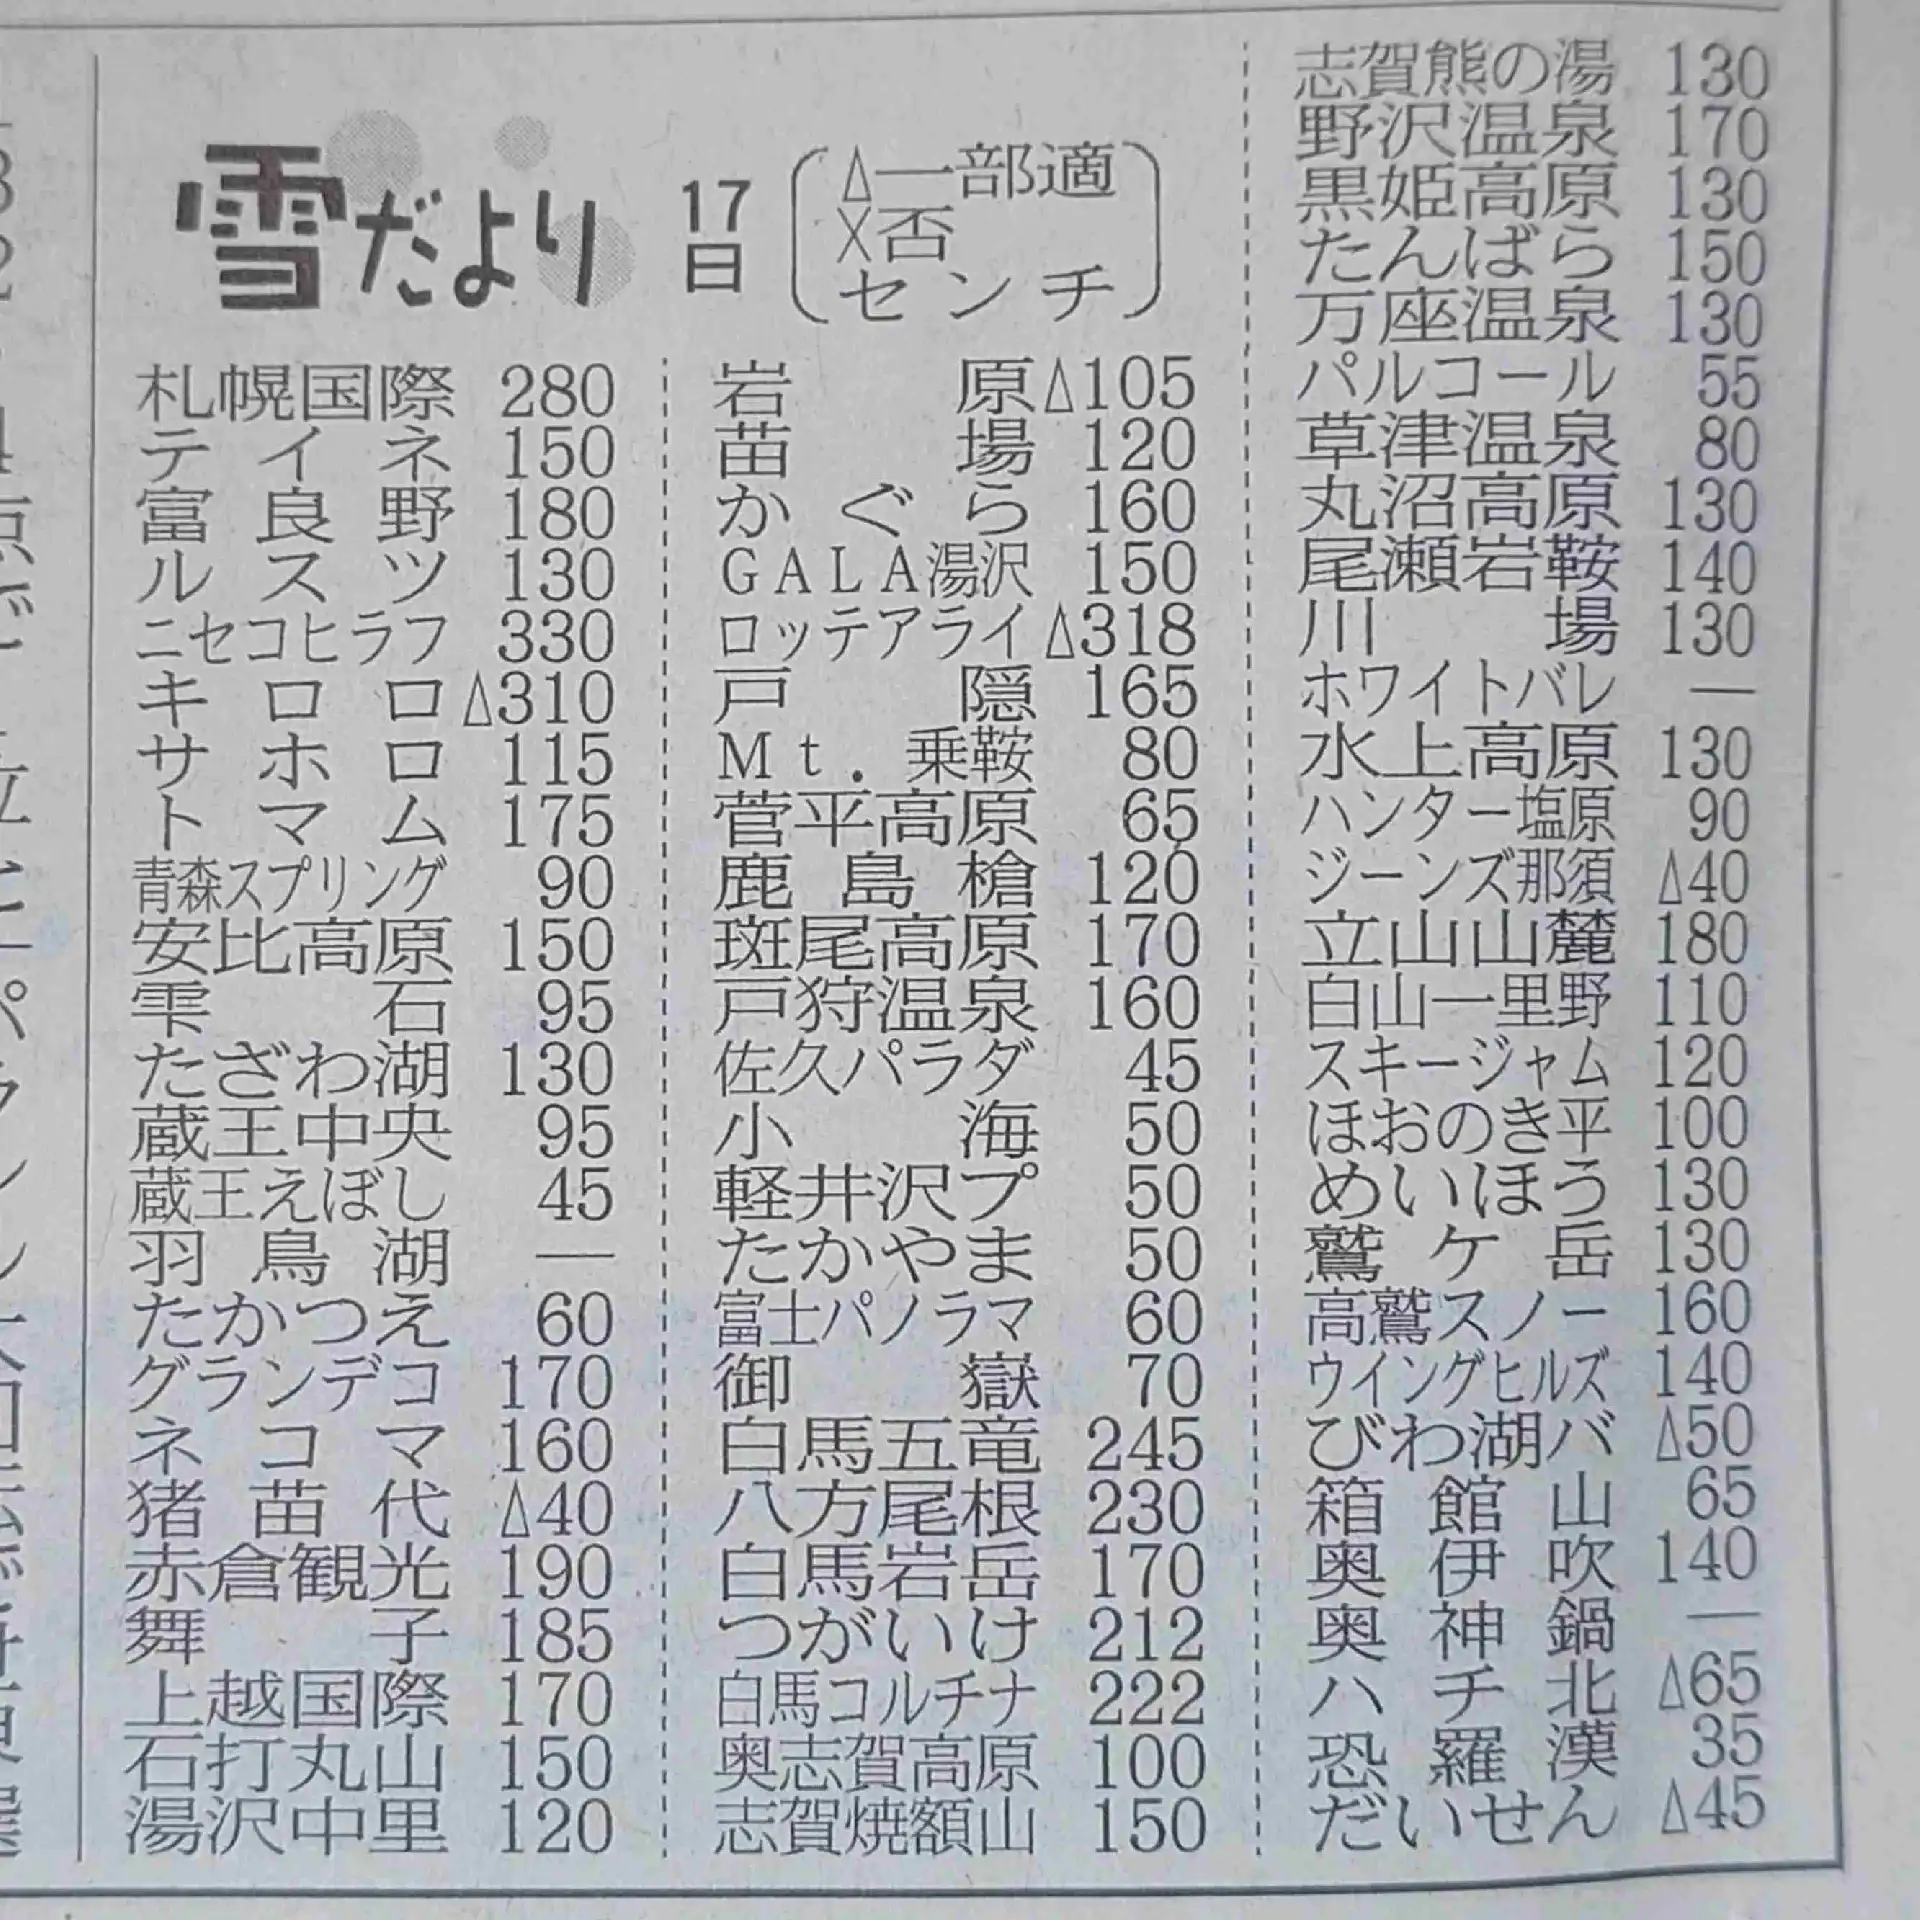 雪だより 17日 (△一部適 ×否 センチ)
札幌国際 280
テイネ 150
富良野 180
ルスツ 130
ニセコヒラフ 330
キロロ △310
サホロ 115
トマム 175
青森スプリング 90
安比高原 150
雫石 95
たざわ湖 130
蔵王中央 95
蔵王えぼし 45
羽鳥湖 —
たかつえ 60
グランデコ 170
ネコマ 160
猪苗代 △40
赤倉観光 190
舞子 185
上越国際 170
石打丸山 150
湯沢中里 120
岩原 △105
苗場 120
かぐら 160
GALA湯沢 150
ロッテアライ △318
戸隠 165
Mt.乗鞍 80
菅平高原 65
鹿島槍 120
斑尾高原 170
戸狩温泉 160
佐久パラダ 45
小海 50
軽井沢プ 50
たかやま 50
富士パノラマ 60
御嶽 70
白馬五竜 245
八方尾根 230
白馬岩岳 170
つがいけ 212
白馬コルチナ 222
奥志賀高原 100
志賀焼額山 150
志賀熊の湯 130
野沢温泉 170
黒姫高原 130
たんばら 150
万座温泉 130
パルコール 55
草津温泉 80
丸沼高原 130
尾瀬岩鞍 140
川場 130
ホワイトバレ —
水上高原 130
ハンター塩原 90
ジーンズ那須 △40
立山山麓 180
白山一里野 110
スキージャム 120
ほおのき平 100
めいほう 130
鷲ケ岳 130
高鷲スノー 160
ウイングヒルズ 140
びわ湖バ △50
箱館山 65
奥伊吹 140
奥神鍋 —
ハチ北 △65
恐羅漢 35
だいせん △45